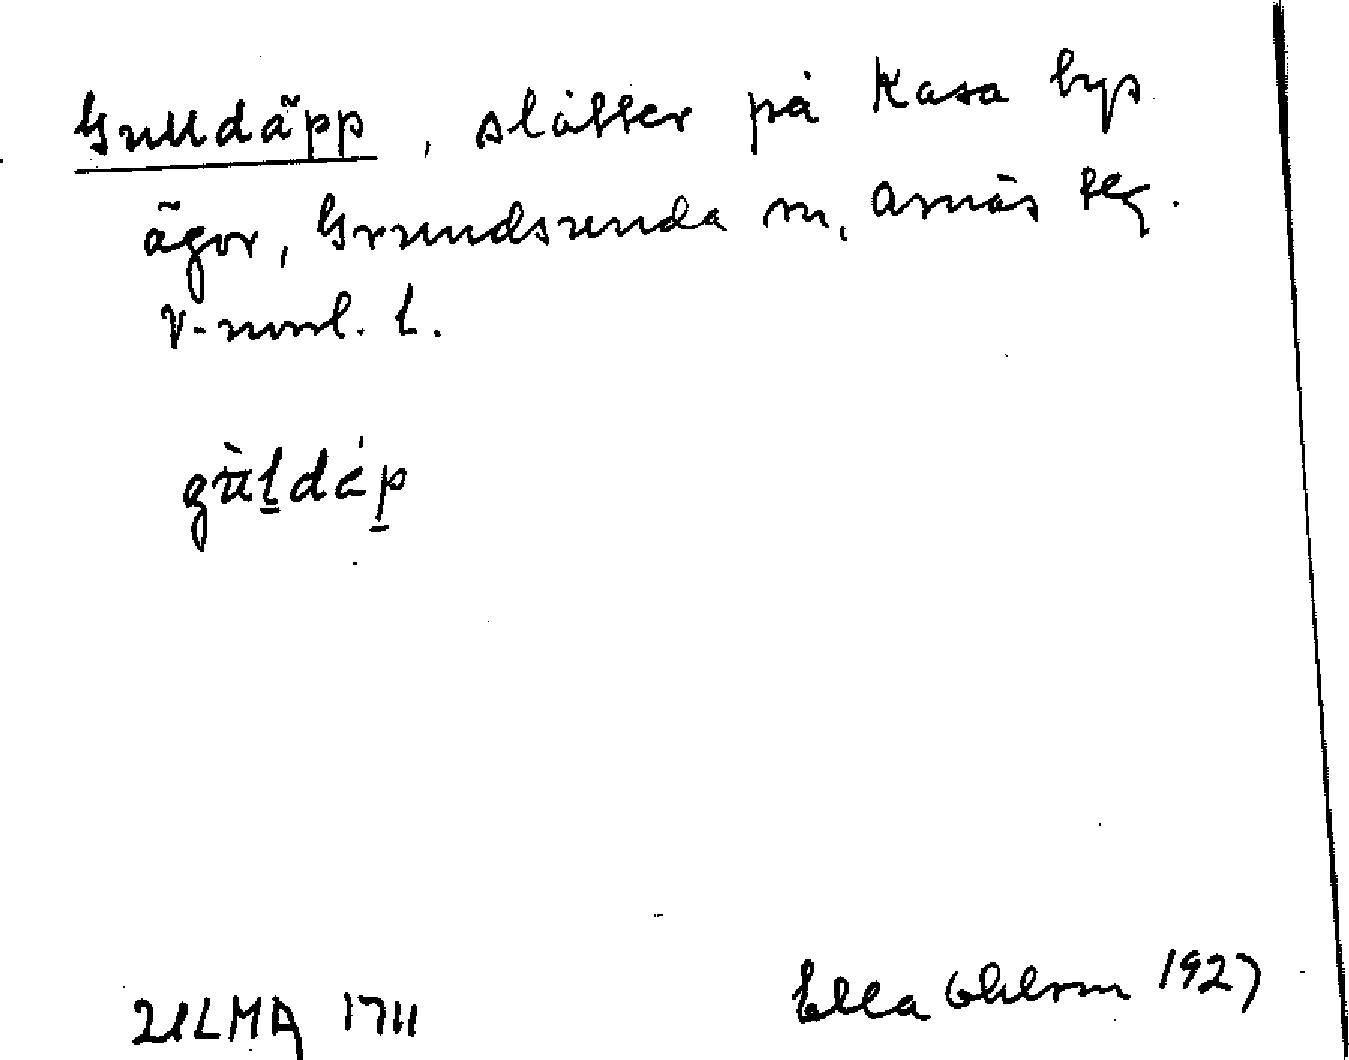 Gulldäpp, slåtter på Kasa bys
ägor, Grundsunda sn, Arnäs tg.
V-norrl. L.
gùldáp
ULMA 1711 Ella Ohlson 1927